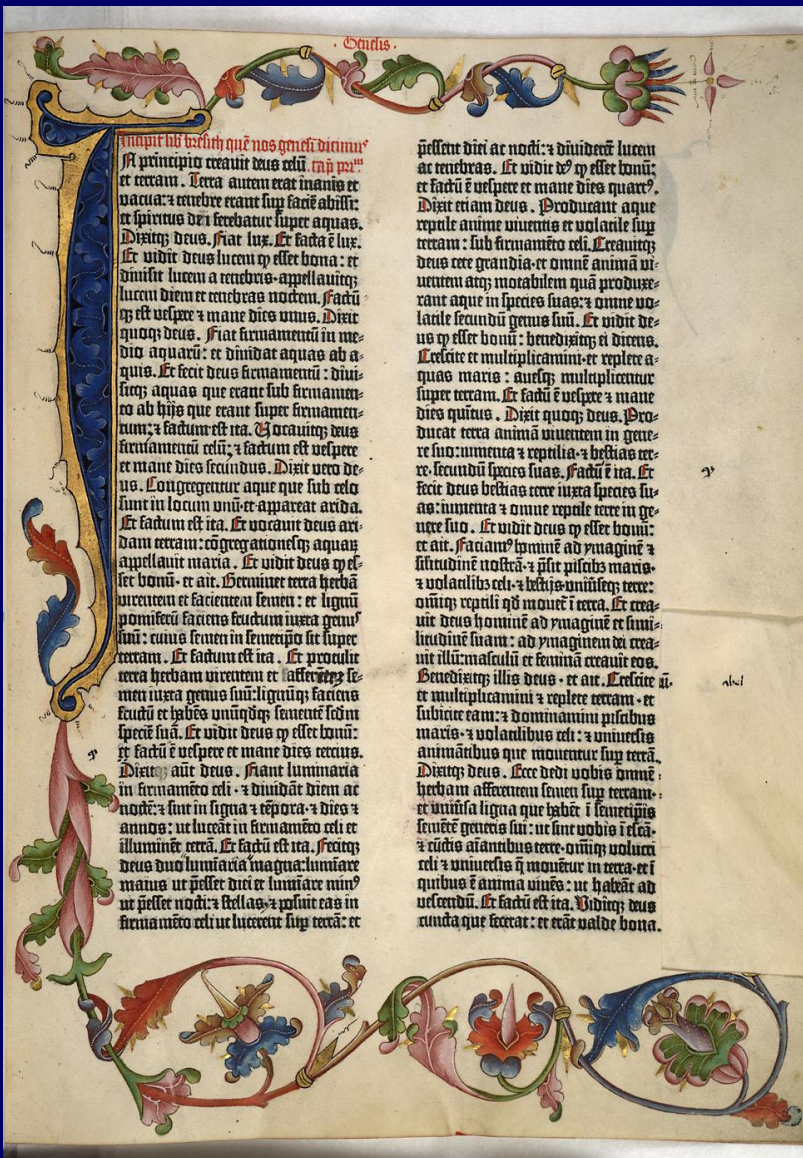 Genesis.
Incipit lib̄ bresith quē nos genesī dicimus
IN principio creauit deus celū cap̄ prīm
et terram. Terra autem erat inanis et
vacua: ⁊ tenebre erant sup̄ faciē abissi:
et spiritus dei ferebatur super aquas.
Dixitqꝫ deus. Fiat lux. Et facta ē lux.
Et vidit deus lucem ꝙ esset bona: et
diuisit lucem a tenebris·appellauitqꝫ
lucem diem et tenebras noctem. Factū
qꝫ est vespere ⁊ mane dies vnus. Dixit
quoqꝫ deus. Fiat firmamentū in me-
dio aquarū: et diuidat aquas ab a-
quis. Et fecit deus firmamentū: diui-
sitqꝫ aquas que erant sub firmamen-
to ab hijs que erant super firmamen-
tum: ⁊ factum est ita. Vocauitqꝫ deus
firmamentū celū: ⁊ factum est vespere
et mane dies secundus. Dixit vero de-
us. Congregentur aque que sub celo
sunt in locum vnū·et appareat arida.
Et factum est ita. Et vocauit deus ari-
dam terram: cōgregationesqꝫ aquaꝝ
appellauit maria. Et vidit deus ꝙ es-
set bonū· et ait. Germinet terra herbā
virentem et facientem semen: et lignū
pomiferū faciens fructum iuxta genus
suū: cuius semen in semetip̄o sit super
terram. Et factum est ita. Et protulit
terra herbam virentem et afferentē se-
men iuxta genus suū: lignūqꝫ faciens
fructū et habēs vnūqdqꝫ sementē scdm
speciē suā. Et vidit deus ꝙ esset bonū:
et factū ē vespere et mane dies tercius.
Dixit aūt deus. Fiant luminaria
in firmamēto celi· ⁊ diuidāt diem ac
noctē: ⁊ sint in signa ⁊ tēpora· ⁊ dies ⁊
annos: ut luceāt in firmamēto celi et
illuminēt terrā. Et factū est ita. Fecitqꝫ
deus duo luminaria magna: lumīare
maius ut p̄esset diei et lumīare minꝰ
ut p̄esset nocti: ⁊ stellas· ⁊ posuit eas in
firmamēto celi ut lucerent sup̄ terrā: et
p̄essent diei ac nocti: ⁊ diuiderēt lucem
ac tenebras. Et vidit deꝰ ꝙ esset bonū:
et factū ē vespere et mane dies quartꝰ.
Dixit etiam deus. Producant aque
reptile anime viuentis et volatile sup̄
terram: sub firmamēto celi. Creauitqꝫ
deus cete grandia·et omnē animā vi-
uentem atqꝫ motabilem quā produxe-
rant aque in species suas: ⁊ omne vo-
latile secundū genus suū. Et vidit de-
us ꝙ esset bonū: benedixitqꝫ ei dicens.
Crescite et multiplicamini·et replete a-
quas maris: auesqꝫ multiplicentur
super terram. Et factū ē vespere ⁊ mane
dies quītus. Dixit quoqꝫ deus. Pro-
ducat terra animā viuentem in gene-
re suo: iumenta ⁊ reptilia· ⁊ bestias ter-
re·secundū species suas. Factū ē ita. Et
fecit deus bestias terre iuxta species su-
as: iumenta ⁊ omne reptile terre in ge-
nere suo. Et vidit deus ꝙ esset bonū:
et ait. Faciamꝰ hominē ad ymaginē ⁊
sīlitudinē nostrā· ⁊ p̄sit piscibꝫ maris·
⁊ volatilibꝫ celi· ⁊ bestijs·vniūseqꝫ terre:
omīqꝫ reptili qd mouet ī terra. Et crea-
uit deus hominē ad ymaginē et simi-
litudinē suam: ad ymaginem dei crea-
uit illū: masculū et feminā creauit eos.
Benedixitqꝫ illis deus· et ait. Crescite
et multiplicamini ⁊ replete terram· et
subicite eam: ⁊ dominamini piscibus
maris· ⁊ volatilibus celi: ⁊ vniuersis
animātibus que mouentur sup̄ terrā.
Dixitqꝫ deus. Ecce dedi vobis omnē
herbam afferentem semen sup̄ terram·
et vniūsa ligna que habēt ī semetip̄is
semētē generis sui: ut sint vobis ī escā·
⁊ cūctis aīantibus terre· omīqꝫ volucri
celi ⁊ vniuersis q̄ mouētur in terra· et ī
quibus ē anima viuēs: ut habeāt ad
vescendū. Et factū est ita. Viditqꝫ deus
cuncta que fecerat: et erāt valde bona.